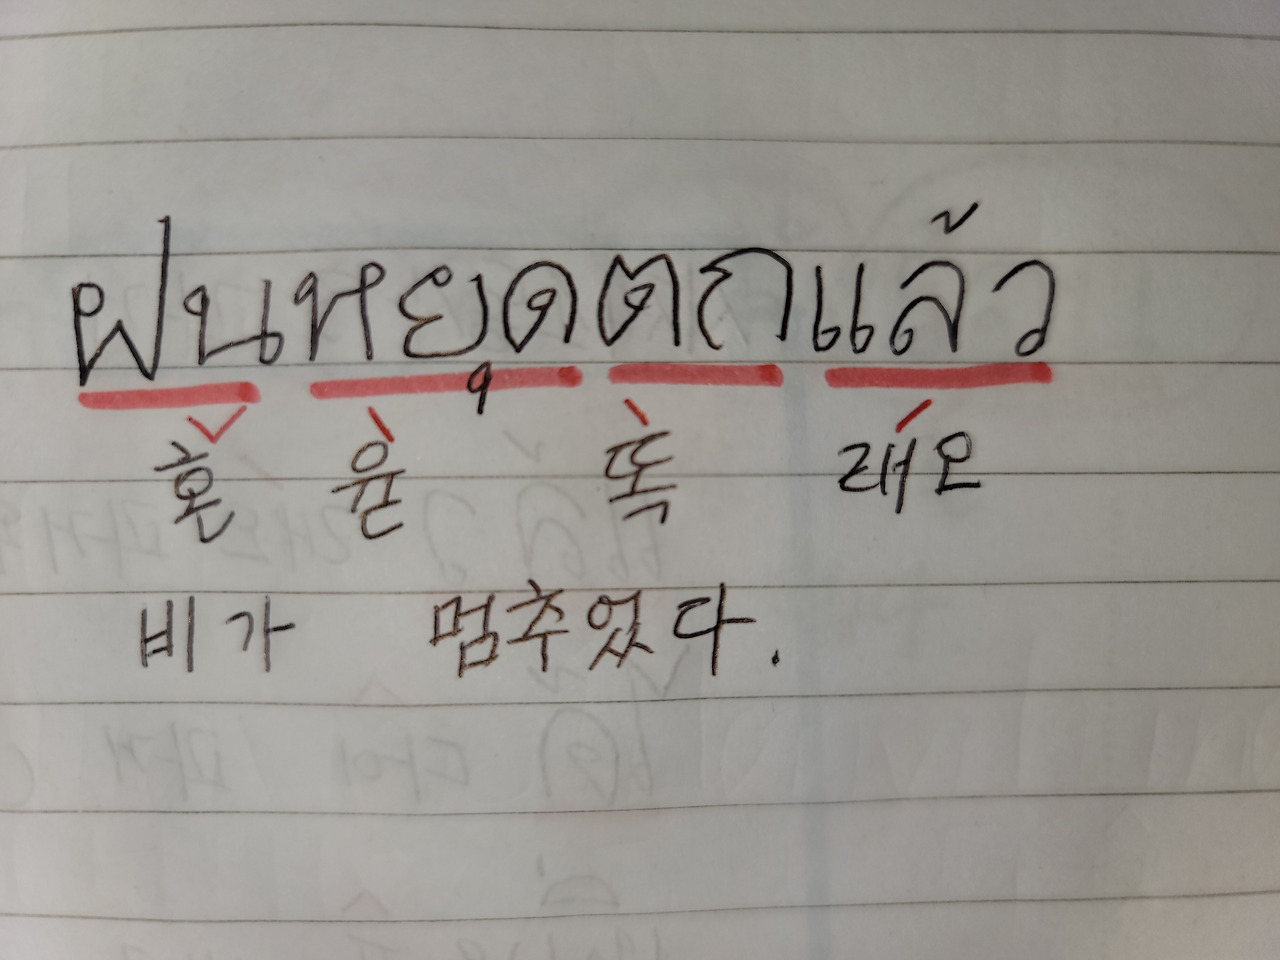 ฝนหยุดตกแล้ว
혼 윧 똑 래오
비가 멈추었다.